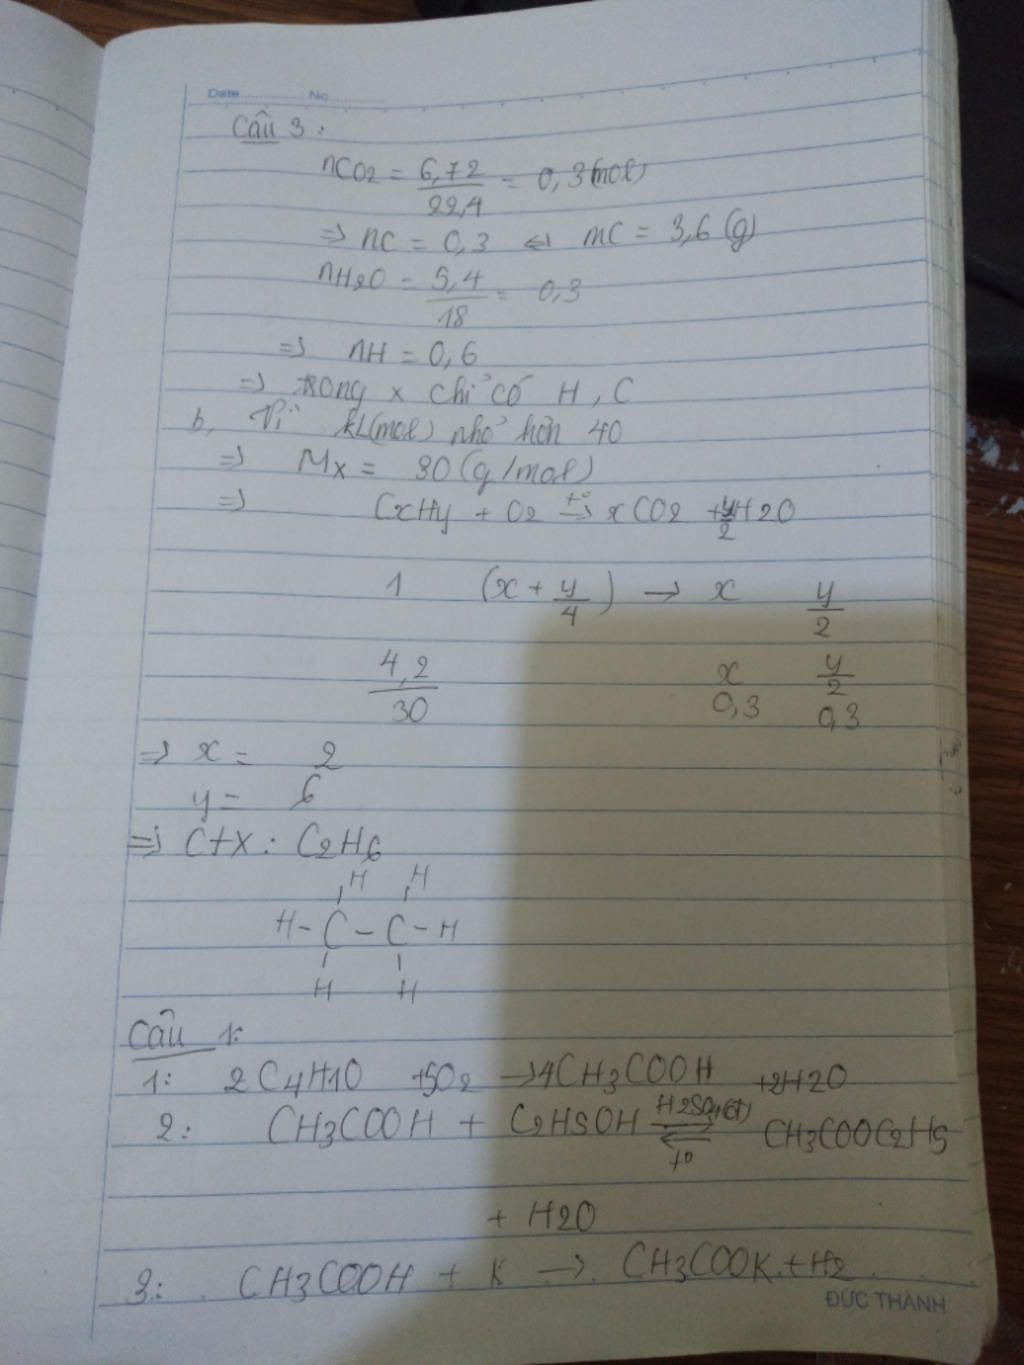 Date No
Câu 3:
nCO2 = 6,72/22,4 = 0,3(mol)
=> nC = 0,3 <=> mC = 3,6 (g)
nH2O = 5,4/18 = 0,3
=> nH = 0,6
=> trong x chỉ có H, C
b, Vì kL(mol) nhỏ hơn 40
=> Mx = 30 (g/mol)
=> CxHy + O2 -t°-> xCO2 + y/2H2O
1 (x + y/4) -> x y/2
4,2/30 x y/2
0,3 0,3
=> x = 2
y = 6
=> CTX: C2H6
H H
H - C - C - H
H H
Câu 1:
1: 2C4H10 +5O2 -> 4CH3COOH +2H2O
2: CH3COOH + C2H5OH H2SO4(đ) ⇌ t° CH3COOC2H5
+ H2O
3: CH3COOH + K -> CH3COOK + H2
ĐỨC THÀNH